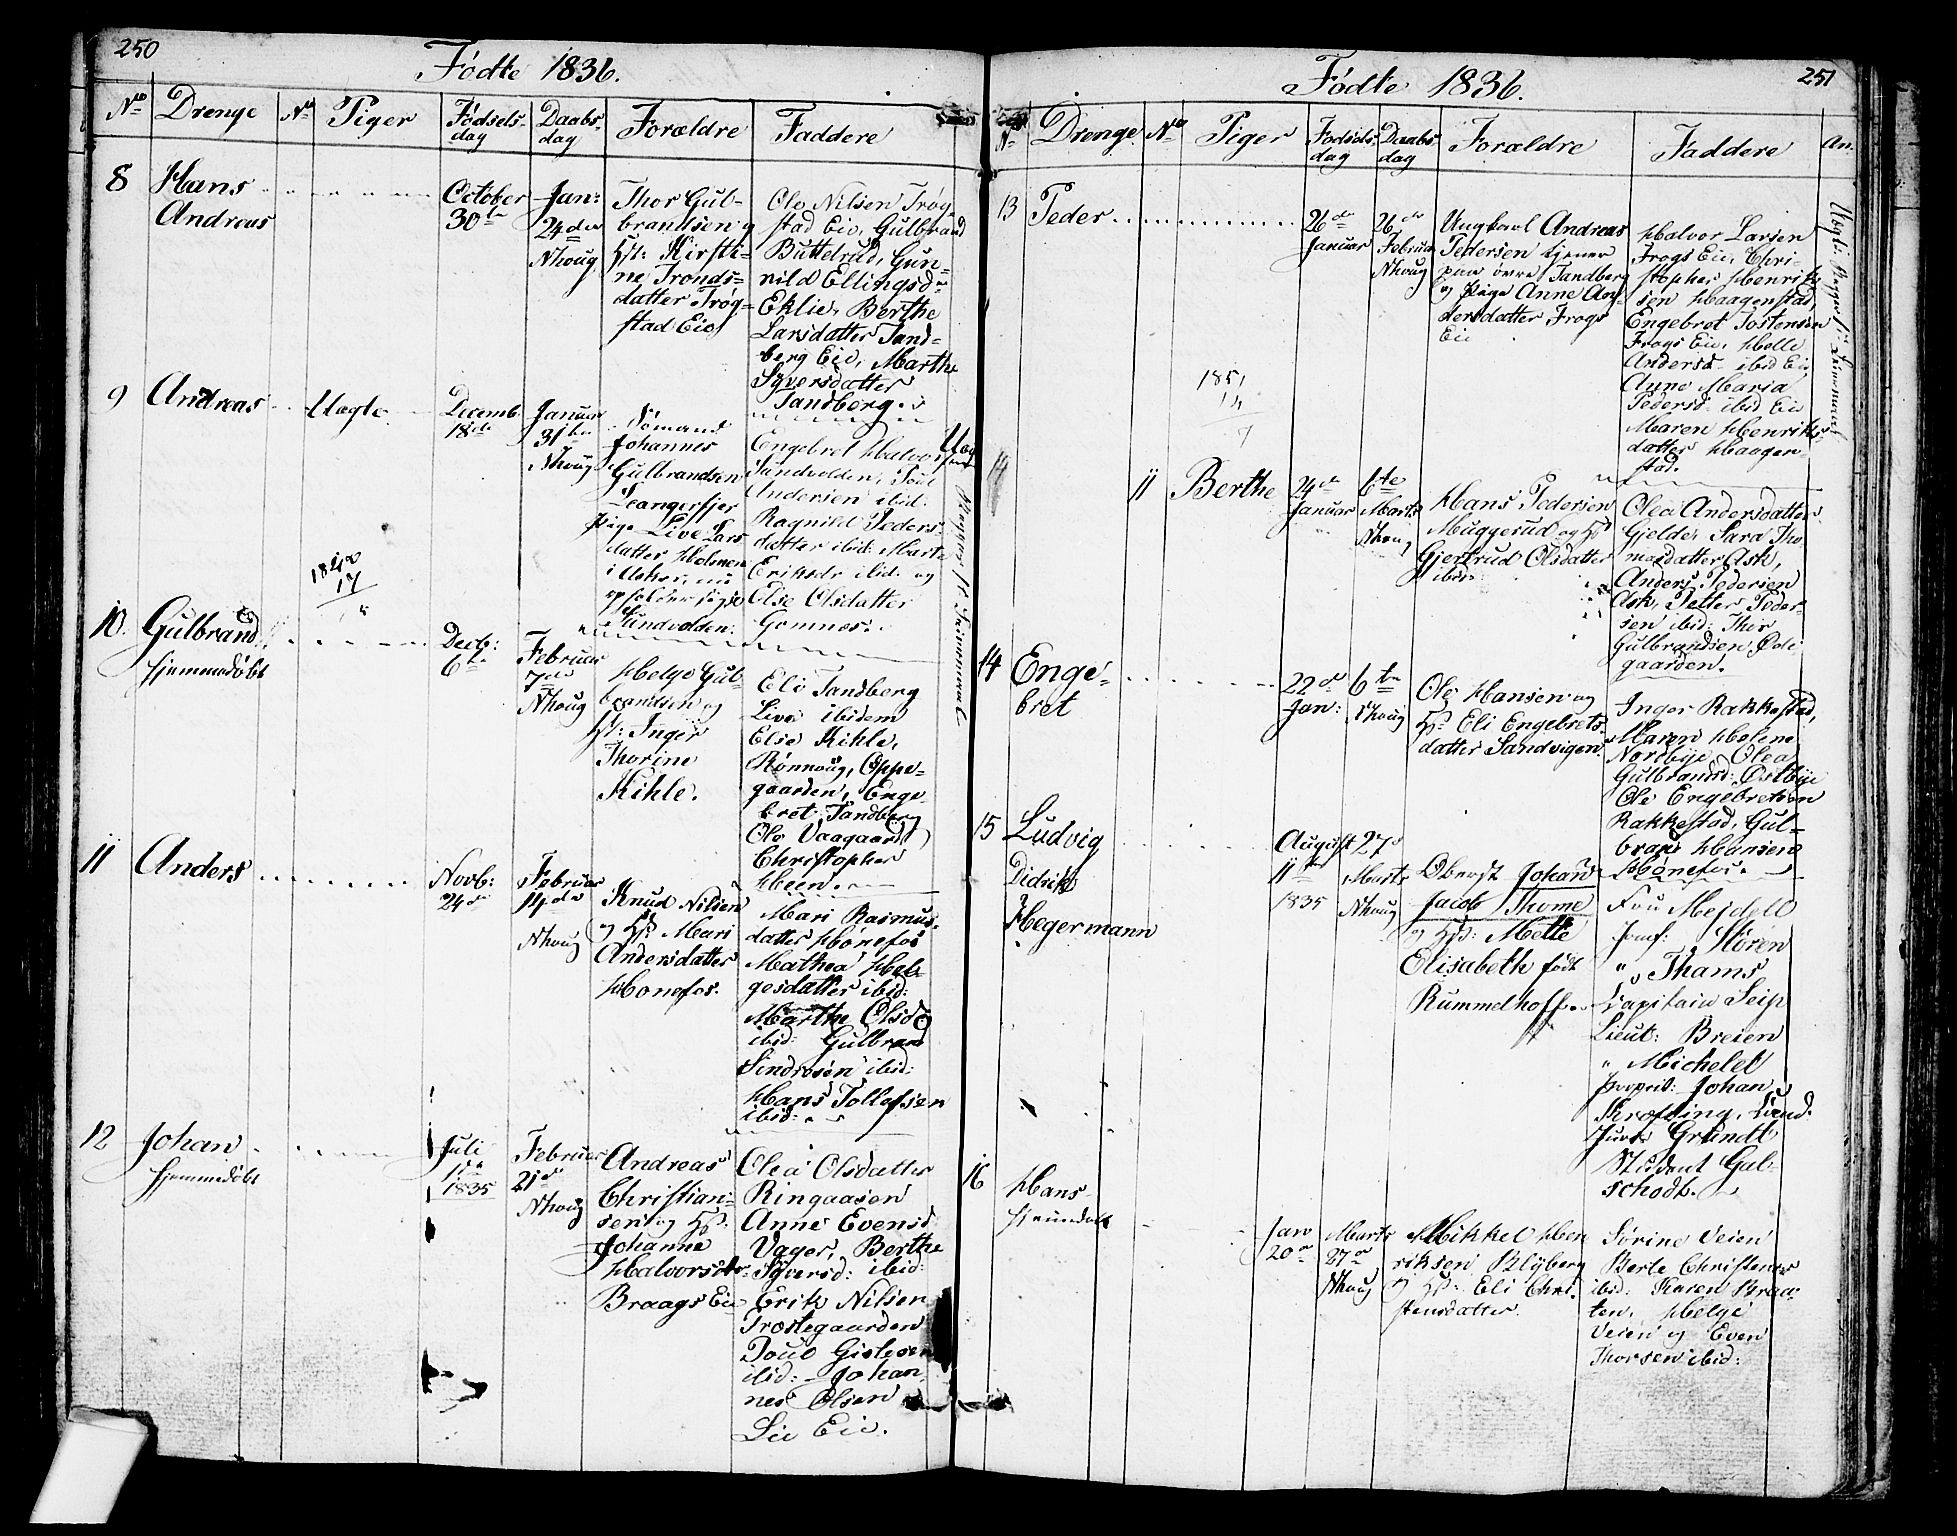 250
Födte 1836.
No Drenge No Piger Fødsels-dag Daabs-dag Forældre Faddere
8
Hans
Andreas
October
30te
Jan:
24de
Nhoug
Thor Gul-
brandsen og
Hst: Kirsti-
ne Tronds-
datter Trøg-
stad Eie
Ole Nilsen Trøg
stad Eie, Gulbrand
Buttelrud, Gun-
nild Ellingsd.
Eklie, Berthe
Larsdatter Tand-
berg Eie, Marthe
Syversdatter
Tandberg.
9
Andreas
Uægte
Decemb.
18de
Januar
31te
Nhoug
Sömand
Johannes
Gulbrandsen
Leangerfjer
Pige Live Lars
datter Holmen
i Asker, nu
opholder sig
Sundvolden.
Engebret Halvors
Sundvolden, Poul
Andersen ibid:
Ragnild Peders-
datter ibid: Marte
Eriksdr ibid: og
Else Olsdatter
Gomnes.
10.
Gulbrand
hjemmedøbt
Decb:
6te
Februar
7de
Nhoug
Helge Gul-
brandsen og
Hst: Inger
Thorine
Kihle.
Eli Tandberg
Live ibidem
Else Kihle,
Rønnoug, Oppe-
gaarden, Enge-
bret Tandberg
Ole Vaagaard
Christopher
Heen.
11
Anders
Novb:
24de
Februar
14de
Nhoug
Knud Nilsen
og Hst: Mari
Andersdatter
Honefos.
Mari Rasmus-
datter Hönefos
Mathea Hel-
gesdatter ibid:
Marthe Olsd.
ibid: Gulbrand
Sindresen ibid:
Hans Tollefsen
ibid:
12
Johan
hjemmedöbt
Juli
1835
Februar
21de
Nhoug
Andreas
Christian-
sen og Hst.
Johanne
Halvorsdtr
Braags Eie
Olea Olsdatter
Ringaasen
Anne Evensd
Vager, Berthe
Syversd: ibid:
Erik Nilsen
Trostegaarden
Poul Gislesen
ibid: Johan
nes Olsen
Lie Eie.
251
Födte 1836.
No Drenge No Piger Fødsels-dag Daabs-dag Forældre Faddere An.
13
Peder
26de
Januar
26de
Februar
Nhoug
Ungkarl Andreas
Pedersen tjener
paa övre Tandberg
og Pige Anne An-
dersdatter Frogs
Eie
Halvor Larsen
Frogs Eie, Chri-
stopher Henrik
sen Haagenstad,
Engebret Tostensen
Frogs Eie, Helle
Andersd. ibid Eie
Anne Maria
Pedersd. ibid Eie
Maren Henriks-
datter Haagen-
stad.
1851
14
11
Berthe
24de
Januar
6te
Marts
Nhoug
Hans Pedersen
Muggerud og Hst
Gjertrud Olsdatter
ibid:
Olea Andersdatter
Gjelde, Sara Tho
masdatter Ask,
Anders Pedersen
Ask, Petter Peder-
sen ibid: Thor
Gulbrandsen Öde
gaarden.
14
Enge-
bret
22de
Jan:
6te
Nhoug
Ole Hansen og
Hst. Eli Engebrets-
datter Sandvigen
Inger Rakkestad,
Maren Helene
Nordbye, Olea
Gulbrandsd: Östbye
Ole Engebretsen
Rakkestad, Gul-
brand Hansen
Hönefos.
15
Ludvig
Didrik
Hegermann
August
11te
1835
27de
Marts
Nhoug
Oberst Johan
Jacob Thome
og Hst: Mette
Elisabeth født
Rummelhoff.
Fru Mejdell
Jomf: Stören
" Thams
Capitain Seip
Lieut: Breien
" Michelet
Proprit: Johan
Jurt Grundt
Student Gal-
schödt.
16
Hans
hjemdöbt
Jan
20de
Marts
27de
Nhoug
Mikkel Hen
riksen Blyberg
og Hst: Eli Chri-
stensdatter.
Sörine Veien
Berte Christens
ibid: Karen Braa-
ten, Helge
Veien og Even
Thorsen ibid: